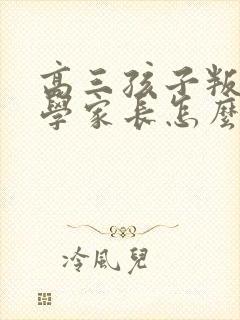 高三孩子叛
學家長怎麼
冷風兒